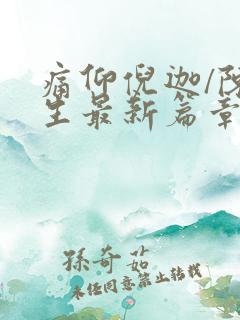 痛仰倪迦/陈
生最新篇章
孫奇茹
未经同意禁止转载